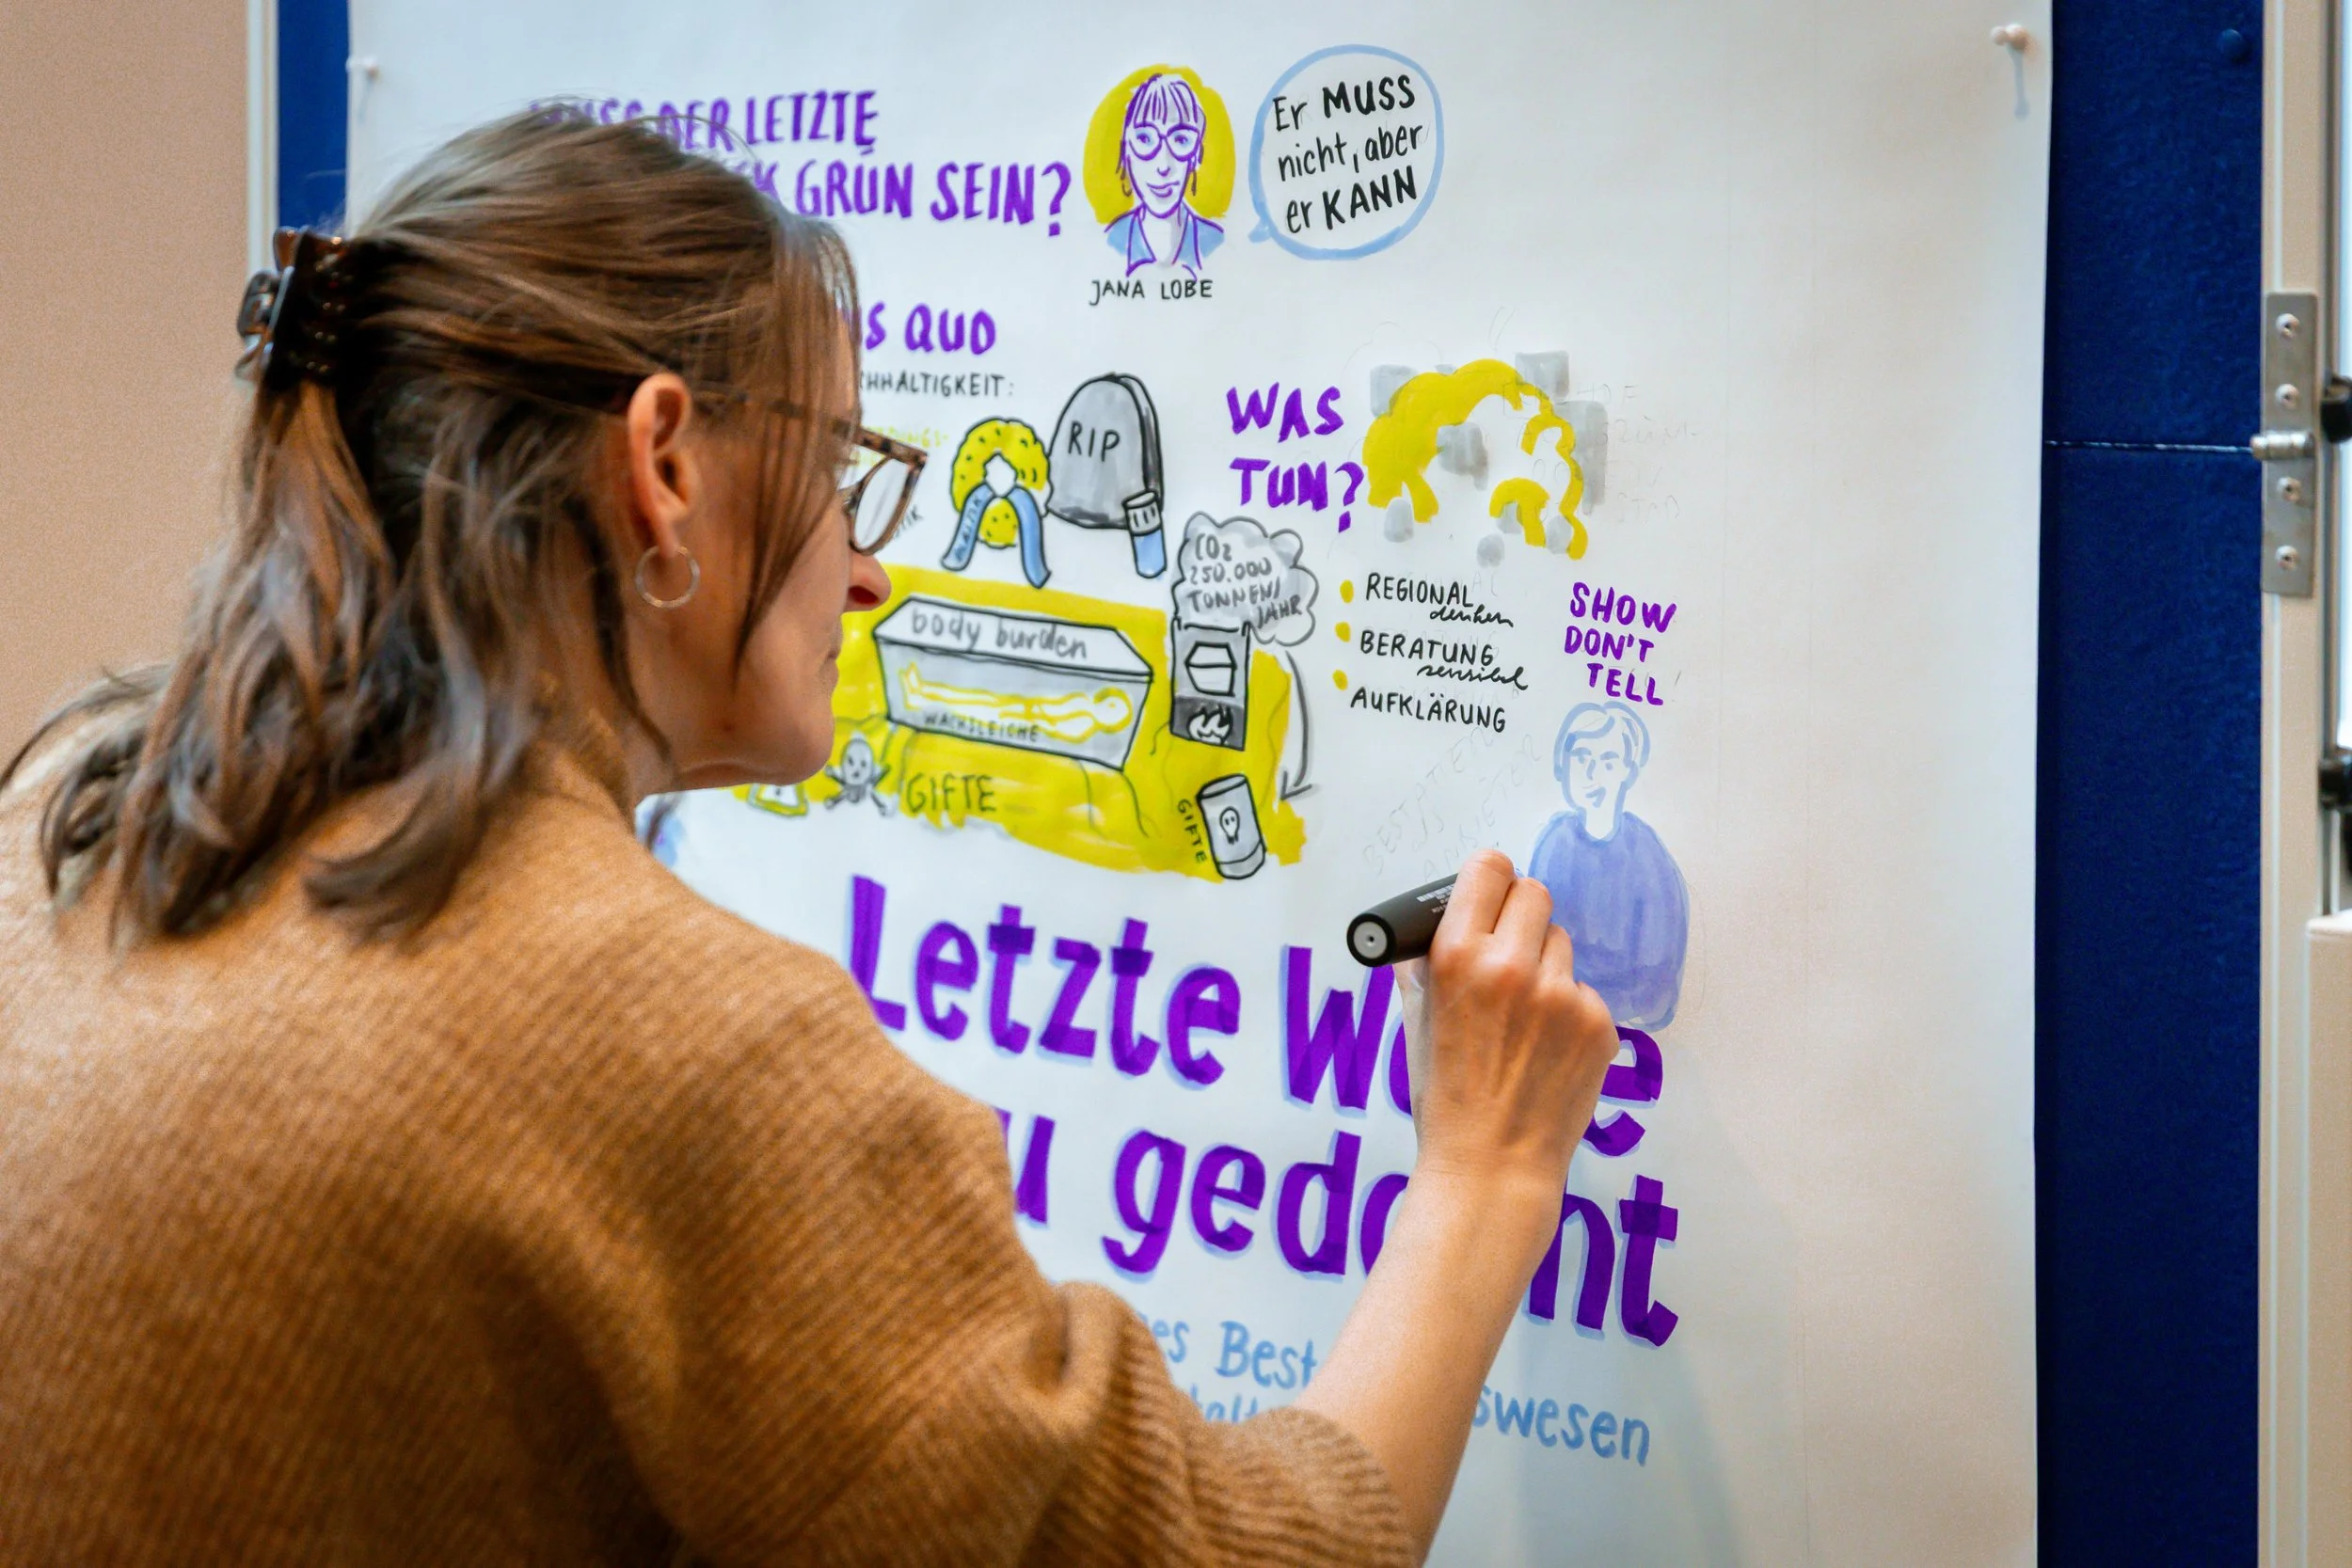 DER LETZTE
GRÜN SEIN?
JANA LOBE
Er MUSS
nicht, aber
er KANN
S QUO
HHALTIGKEIT:
RIP
WAS
TUN?
CO2
250.000
TONNEN/
JAHR
body burden
WACHSLEICHE
GIFTE
GIFTE
REGIONAL
denken
BERATUNG
sensibel
AUFKLÄRUNG
SHOW
DON'T
TELL
Letzte W e
u ged ht
es Best swesen